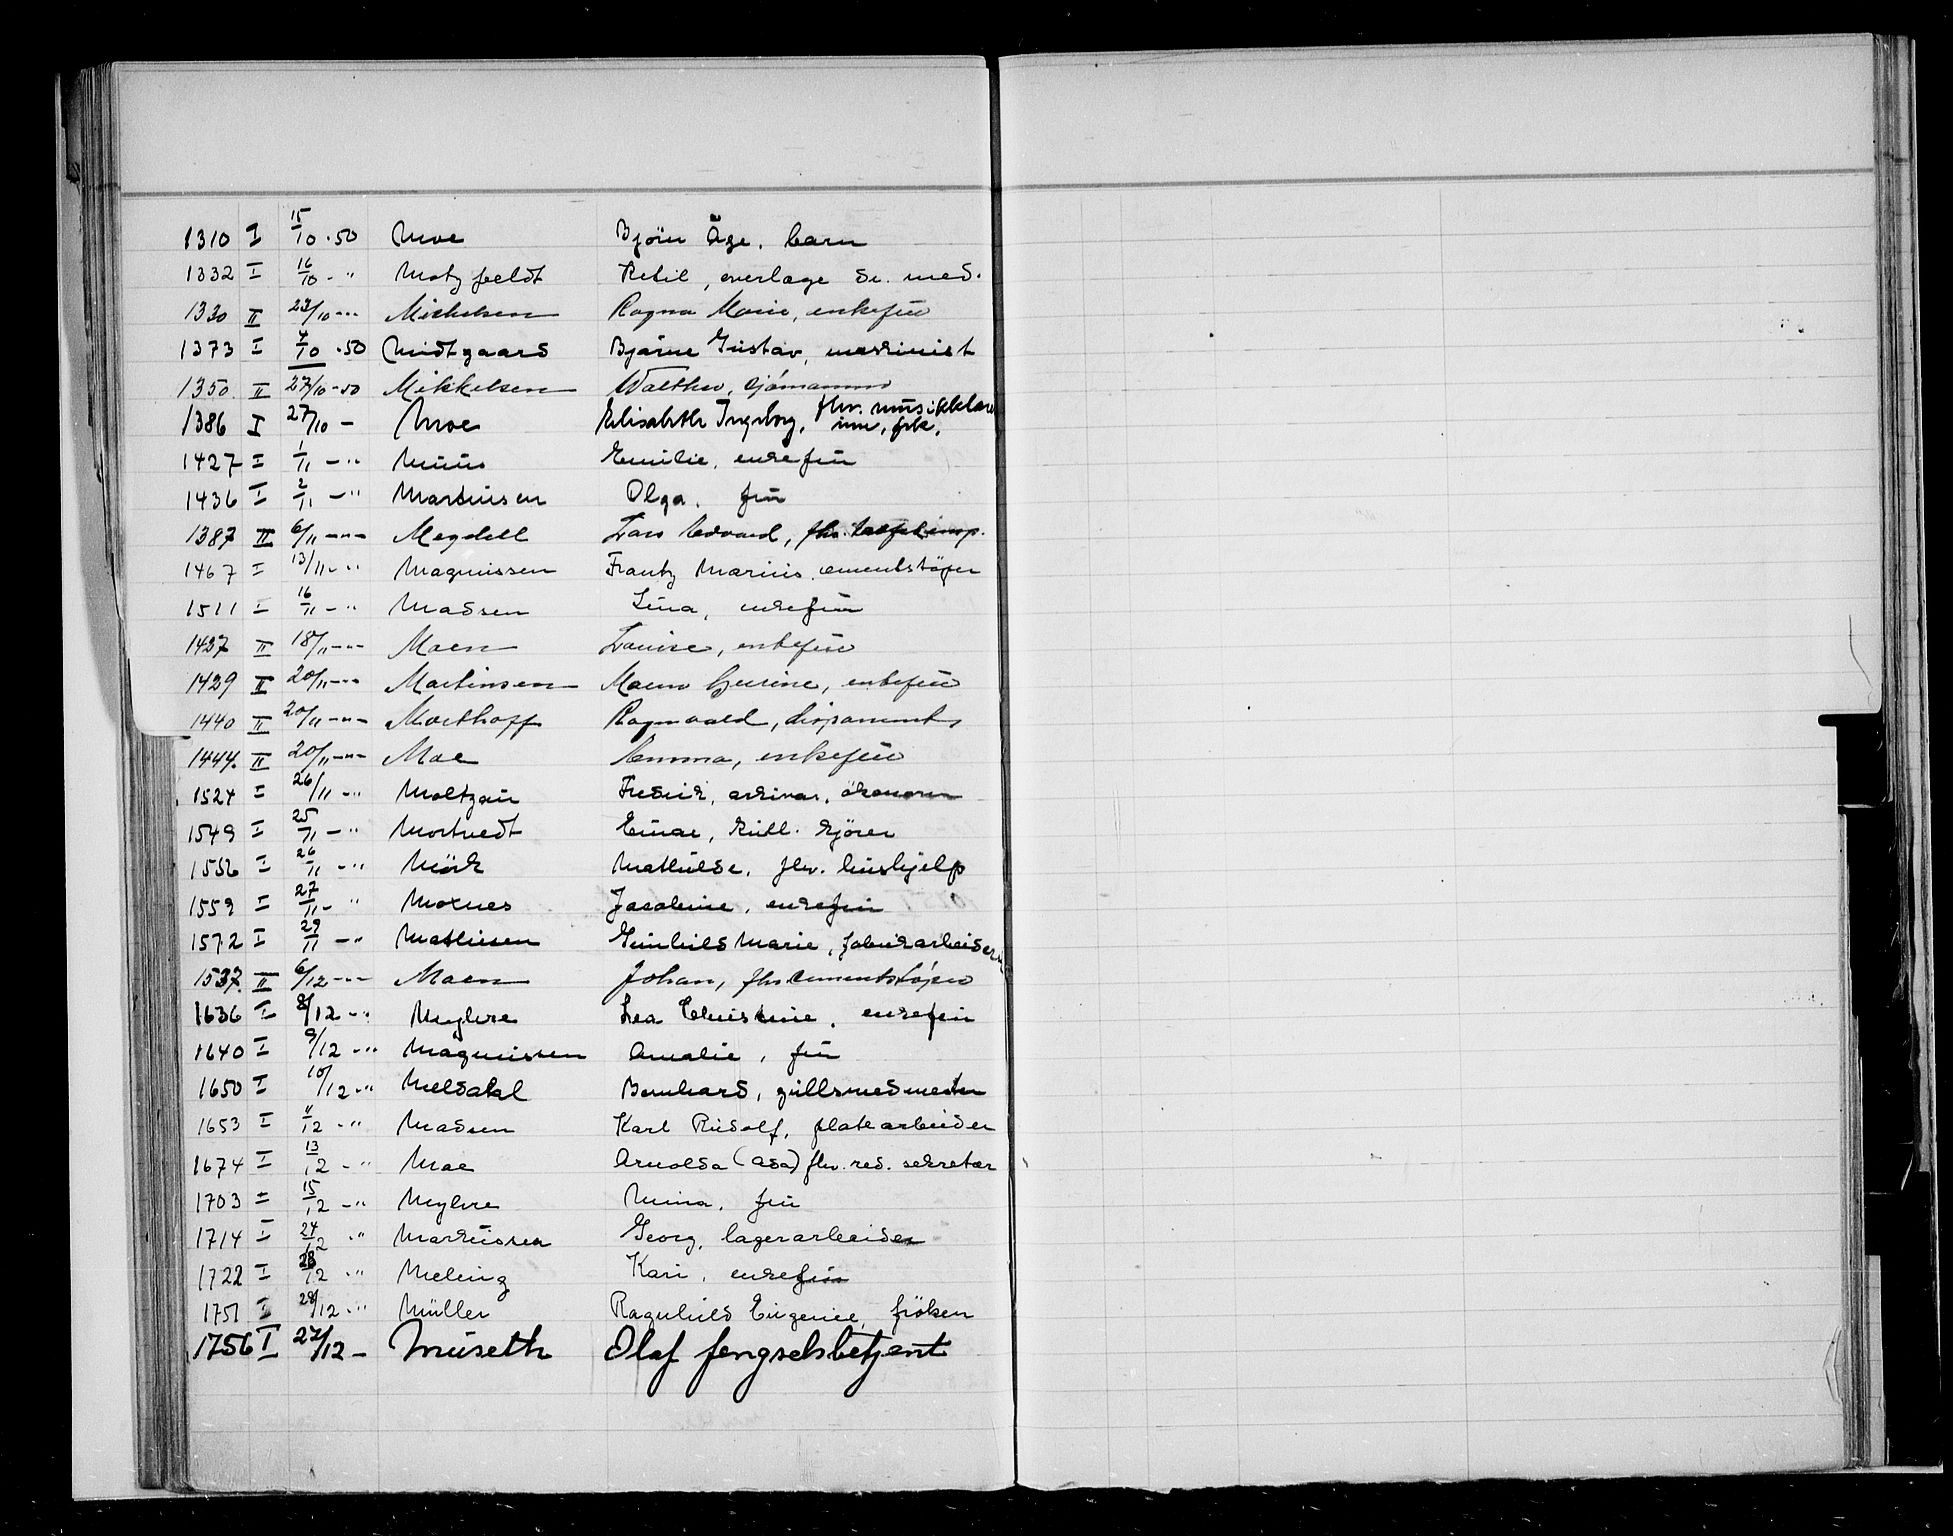 1310 I 15/10 . 50 Moe Bjørn Åge, barn
1332 I 16/10 - " Motzfeldt Ketil, overlæge dr. med.
1330 II 23/10 - " - Mickelsen Ragna Marie, enkefru
1373 I 4/10 . 50 Midtgaard Bjarne Gustav, maskinist
1350 II 27/10 - 50 Mikkelsen Walther, sjømann
1386 I 27/10 - Moe Elisabeth Ingeborg, fhv. musikklærer
inne, frk.
1427 I 1/11 - " Muus Emilie, enkefru
1436 I 2/11 - " Martinsen Olga, fru
1387 II 6/11 - " - Megdell Lars Edvard, fhv.
1467 I 13/11 - " Magnussen Frantz Marius, cementstøper
1511 I 16/11 - " Madsen Lina, enkefru
1437 II 18/11 - " - Moen Louise, enkefru
1429 II 20/11 - " - Martinsen Maren Gurine, enkefru
1440 II 20/11 - " - Morthoff Ragnvald, disponent
1444. II 20/11 - " - Moe Emma, enkefru
1524 I 26/11 - " Moltzau Fredrik, arkivar, økonom
1549 I 25/11 - " Mortvedt Einar, kull. kjører
1556 I 26/11 - " Mörk Mathilde, fhv. hushjelp
1559 I 27/11 - " Moxnes Jacobine, enkefru
1572 I 29/11 - " Mathisen Gunhild Marie, fabrikarbeiderske
1537. II 6/12 - " - Moen Johan, fhv cementstøper
1636 I 8/12 - " Myhre Lea Christine, enkefru
1640 I 9/12 - " Magnussen Amalie, fru
1650 I 10/12 - " Meldahl Bernhard, gullsmedmester
1653 I 11/12 - " Madsen Karl Rudolf, platearbeider
1674 I 13/12 - " Moe Arnolda (Ada) fhv. red. sekretær
1703 I 15/12 - " Myhre Mina, fru
1714 I 24/12 " Markussen Georg, lagerarbeider
1722 I 28/12 - " Meling Kari, enkefru
1751 I 28/12 - " Müller Ragnhild Eugenie, frøken
1756 I 27/12 - Museth Olaf fengselsbetjent